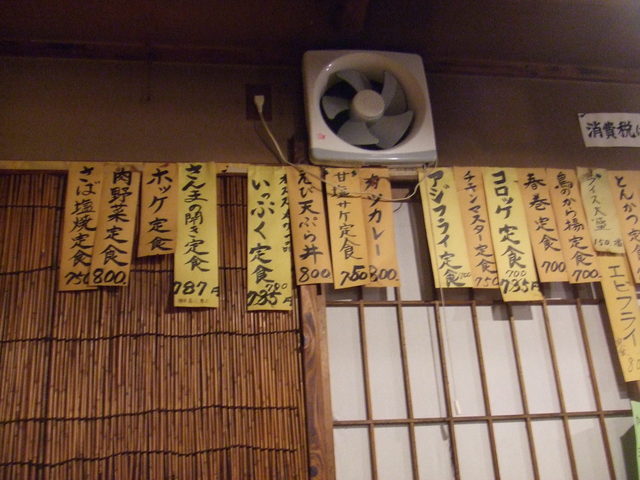 消費税
とんかつ定食
エビフライ
ライス大盛
150.増
鳥のから揚定食
700.
春巻定食
700
コロッケ定食
700
735円
チキンマスター定食
750
アジフライ定食
700
カツカレー
800.
甘塩サケ定食
750
えび天ぷら丼
800
いっぷく定食
700
735円
さんま開き定食
787円
ホッケ定食
肉野菜定食
800.
さば塩焼定食
750